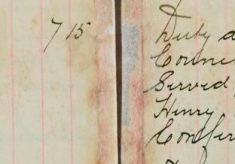 7 15
Duty a
Counc
Served
Henry
Confer